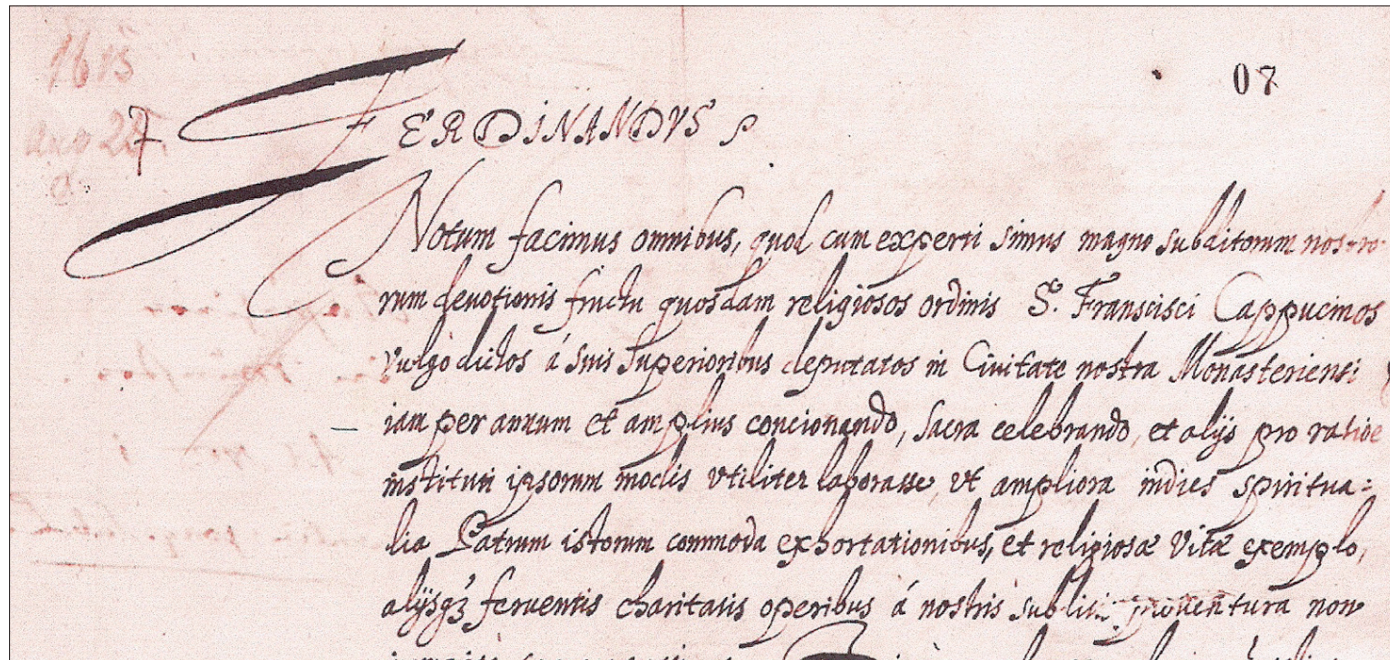 1615
Aug 28.
07
FERDINANDVS
Notum facimus omnibus, quod cum experti simus magno subditorum nostro-
rum devotionis fructu quosdam religiosos ordinis S. Fransisci Cappucinos
vulgo dictos á suis Superioribus deputatos in Civitate nostra Monasteriensi
iam per annum et amplius concionando, sacra celebrando, et alijs pro ratioe
instituti ipsorum modis vtiliter laborasse, vt ampliora indies spiritua=
lia Patrum istorum commoda exhortationibus, et religiosæ vitæ exemplo,
alijsq3 feruentis charitatis operibus á nostris subditis proventura non